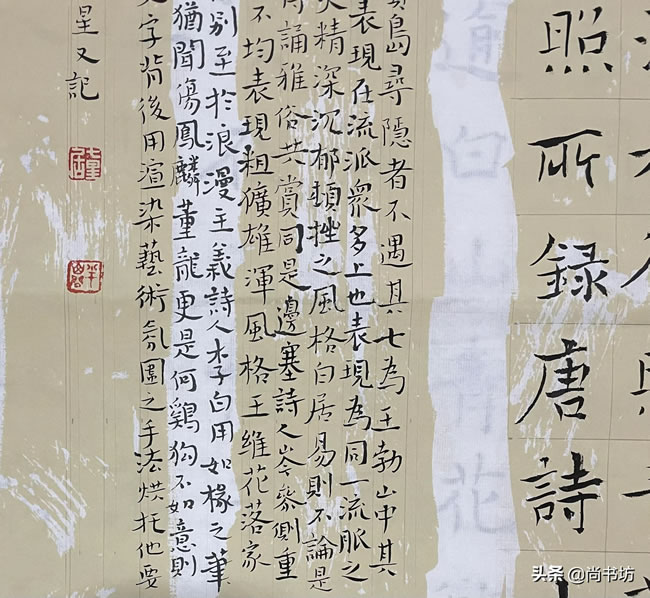 照所録唐詩
逾白山青花
島尋隱者不遇其七為王勃山中其
表現在流派衆多上也表現為同一流脈之
精深沉郁頓挫之風格白居易則不論是
誦雅俗共賞同是邊塞詩人岑參側重
不均表現粗獷雄渾風格王維花落家
別至於浪漫主義詩人李白用如椽之筆
猶聞傷鳳麟董龍更是何鷄狗不如意則
字背後用渲染藝術氛圍之手法烘托他要
星又記
头条 @尚书坊